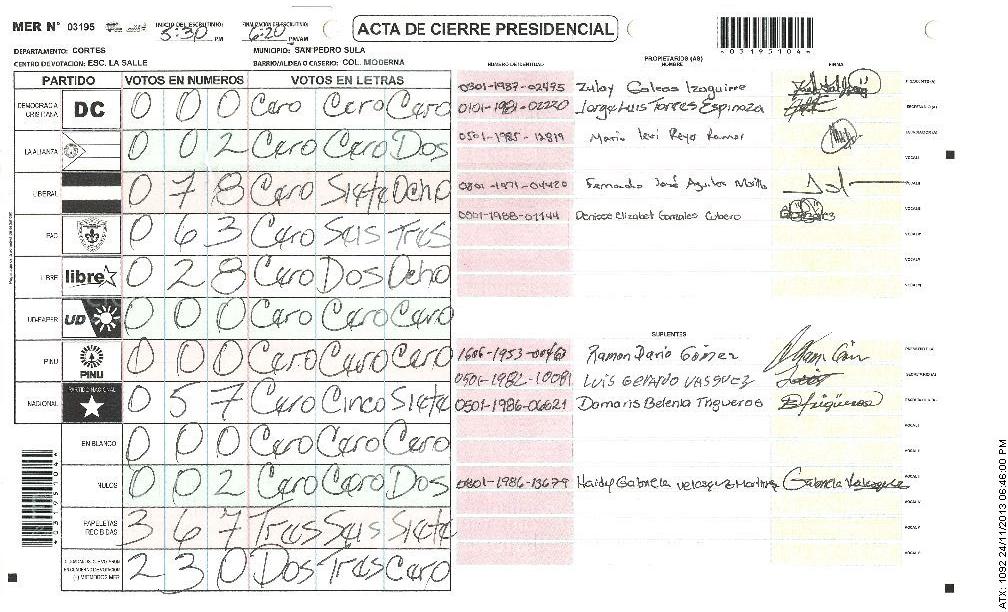 MER N° 03195 INICIO DEL ESCRUTINIO: 5:30 PM FINALIZACION DEL ESCRUTINIO: 6:20 PM/AM
ACTA DE CIERRE PRESIDENCIAL
03195104
DEPARTAMENTO: CORTES MUNICIPIO: SAN PEDRO SULA
CENTRO DE VOTACION: ESC. LA SALLE BARRIO/ALDEA O CASERIO: COL. MODERNA
PARTIDO VOTOS EN NUMEROS VOTOS EN LETRAS
DEMOCRACIA CRISTIANA DC 0 0 0 Cero Cero Cero
LA ALIANZA 0 0 2 Cero Cero Dos
LIBERAL 0 7 8 Cero Siete Ocho
PAC 0 6 3 Cero Seis Tres
LIBRE libre 0 2 8 Cero Dos Ocho
UD-FAPER UD 0 0 0 Cero Cero Cero
PINU PINU 0 0 0 Cero Cero Cero
NACIONAL PARTIDO NACIONAL 0 5 7 Cero Cinco Siete
EN BLANCO 0 0 0 Cero Cero Cero
NULOS 0 0 2 Cero Cero Dos
PAPELETAS RECIBIDAS 3 6 7 Tres Seis Siete
2 3 0 Dos Tres Cero
PROPIETARIOS (AS)
NUMERO DE IDENTIDAD NOMBRE FIRMA
0301-1987-02495 Zulay Galeas Izaguirre PRESIDENTE(A)
0101-1981-02220 Jorge Luis Torres Espinoza SECRETARIO(A)
0501-1985-12819 Mario Levi Reyes Ramos
VOCAL I
0801-1971-04420 Fernando José Aguilar
0501-1988-01144 Denisse Elizabet Gonzales Cubero
SUPLENTES
1606-1953-00460 Ramon Dario Gómez PRESIDENTE(A)
0501-1982-10081 LUIS GERARDO VASQUEZ SECRETARIO(A)
0501-1986-06621 Damaris Belenia Trigueros
VOCAL I
0801-1986-13679 Haidy Gabriela Velasquez Martinez Gabriela Velasquez
ATX: 1092 24/11/2013 06:46:00 PM